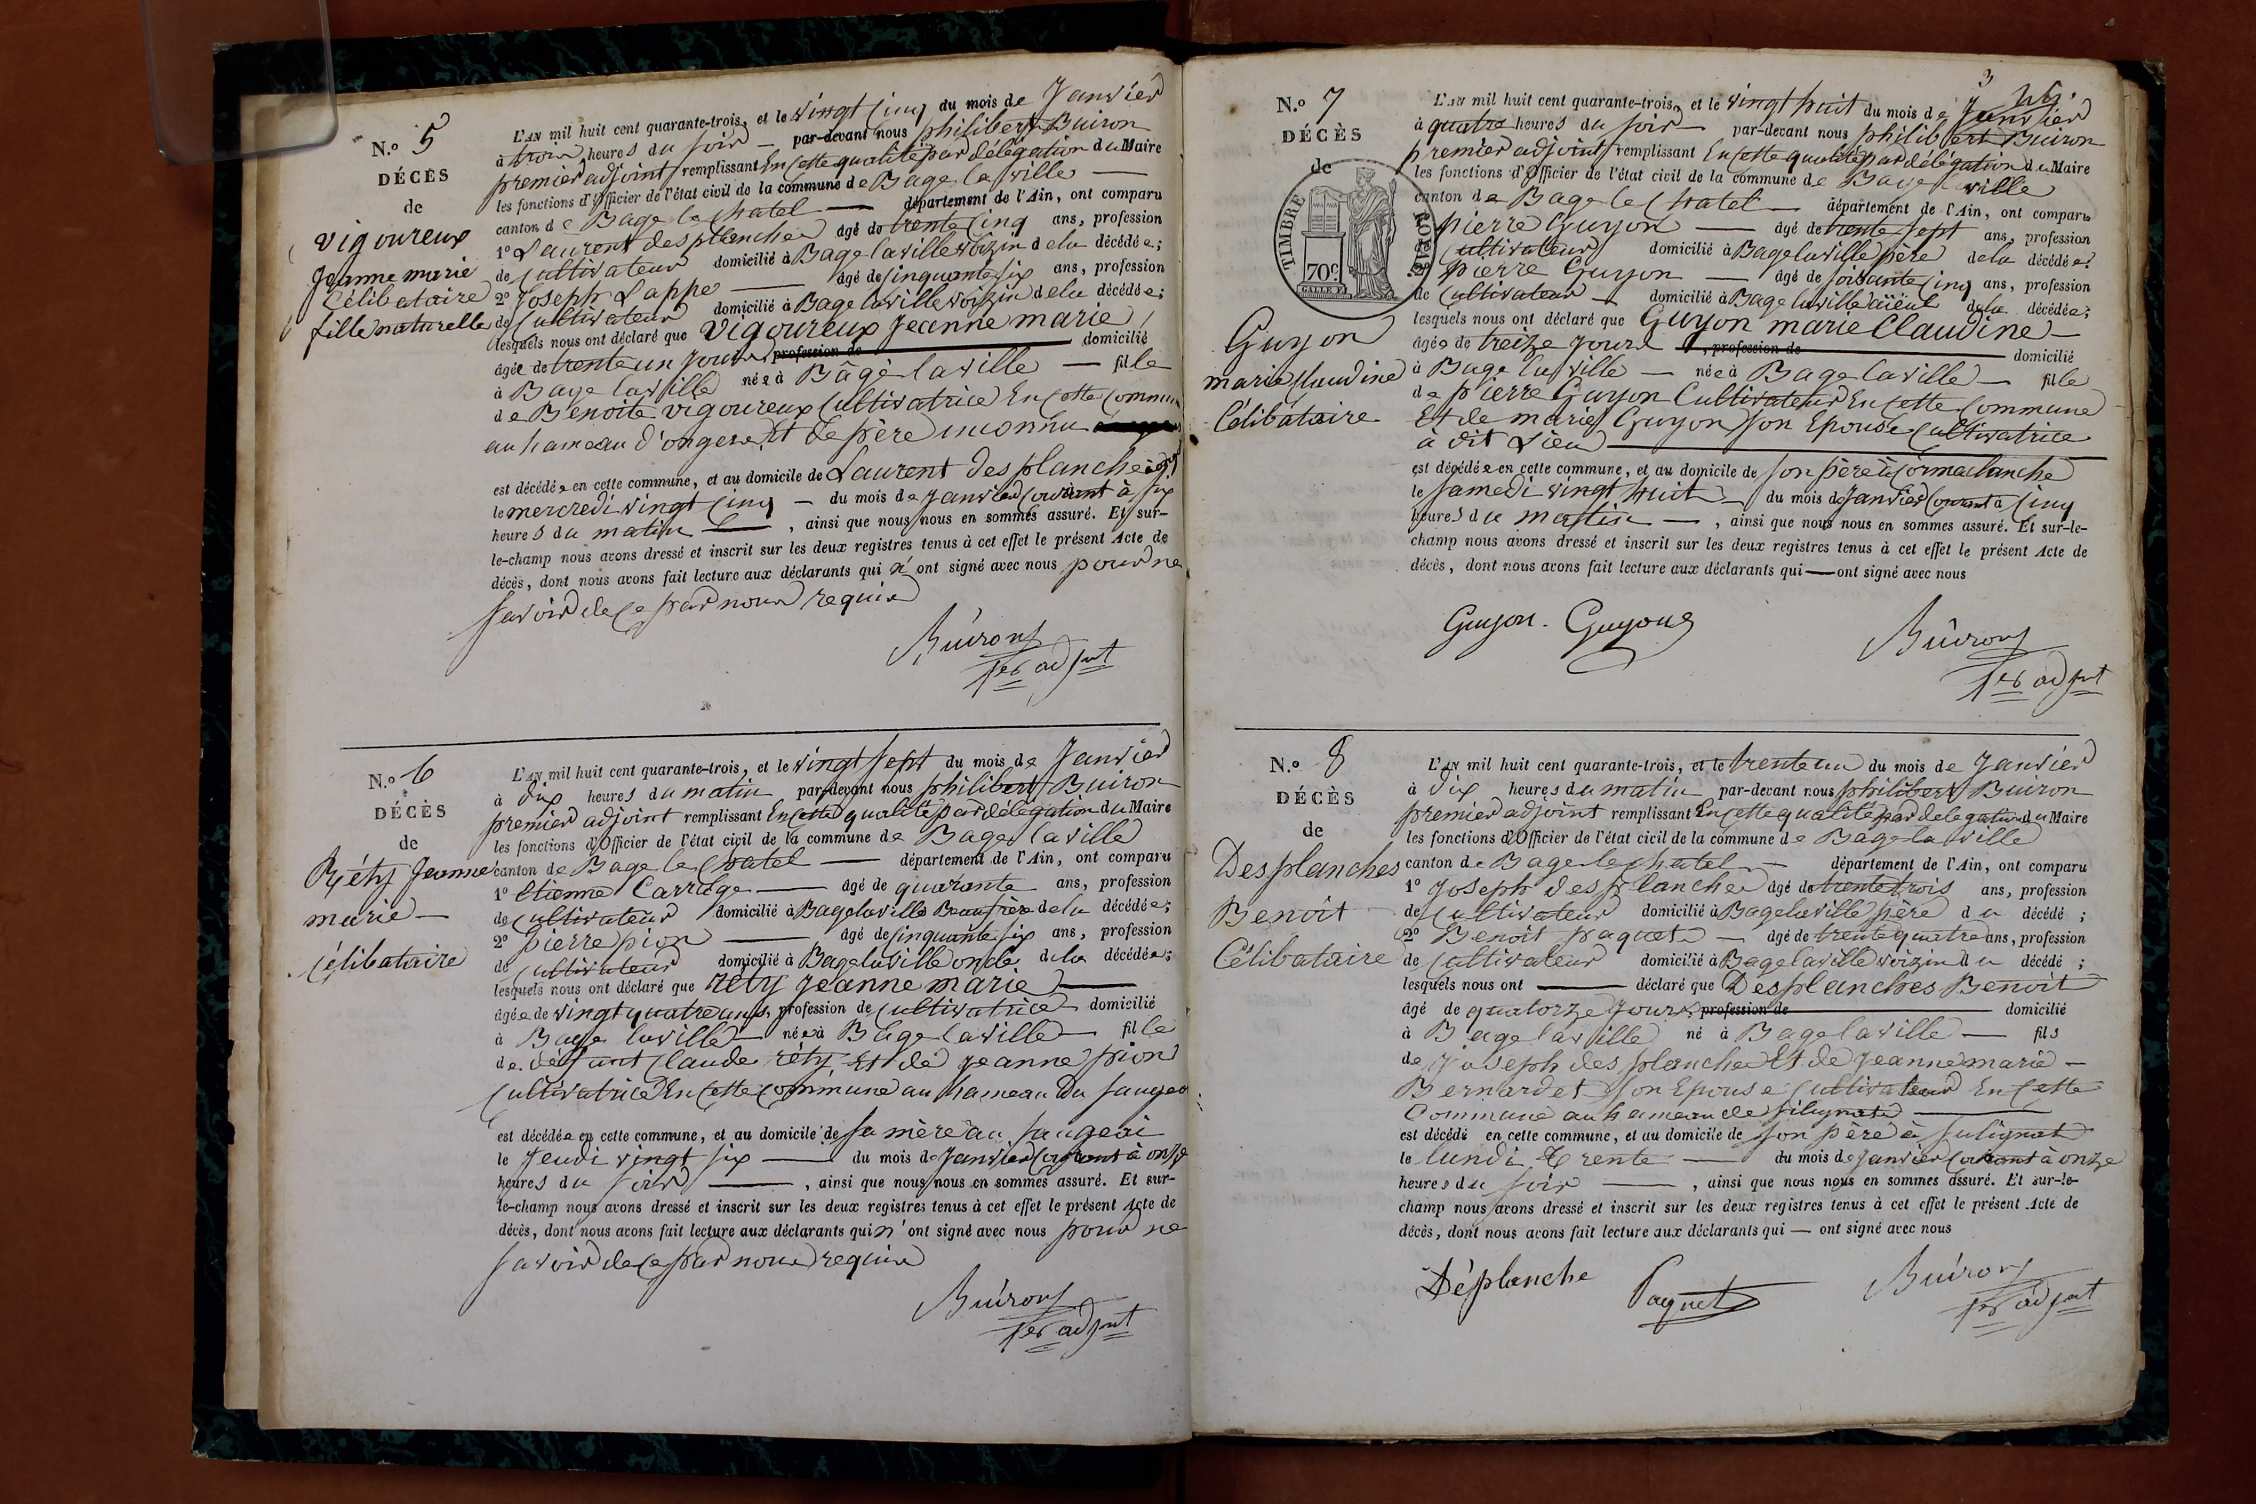 N.º 5
DÉCÈS
de
Vigoureux
Jeanne marie
Célibataire
fille naturelle
L'AN mil huit cent quarante-trois, et le vingt cinq du mois de Janvier
à trois heures du soir — par-devant nous philibert Buiron
premier adjoint remplissant En cette qualité par délégation du Maire
les fonctions d'Officier de l'état civil de la commune de Bage la ville —
canton de Bage le Chatel — département de l'Ain, ont comparu
1º Laurent desplanches âgé de trente cinq ans, profession
de Cultivateur domicilié à Bage la ville voizin de la décédée;
2º Joseph Lappe — âgé de cinquante six ans, profession
de Cultivateur domicilié à Bage la ville voizin de la décédée;
lesquels nous ont déclaré que Vigoureux Jeanne marie
âgée de trente un jours, profession de domicilié
à Bage la ville née à Bagé la ville — fille
de Benoite vigoureux Cultivatrice En cette Commune
au hameau d'ongere, Et de père inconnu
est décédée en cette commune, et au domicile de Laurent des planches
le mercredi vingt cinq — du mois de Janvier Courant à six
heures du matin — , ainsi que nous nous en sommes assuré. Et sur-
le-champ nous avons dressé et inscrit sur les deux registres tenus à cet effet le présent Acte de
décès, dont nous avons fait lecture aux déclarants qui n'ont signé avec nous pour ne
savoir de ce par nous requis
Buiron
1er adjnt
N.º 6
DÉCÈS
de
Réty Jeanne
marie —
Célibataire
L'AN mil huit cent quarante-trois, et le vingt sept du mois de Janvier
à dix heures du matin par-devant nous philibert Buiron
premier adjoint remplissant En cette qualité par délégation du Maire
les fonctions d'Officier de l'état civil de la commune de Bage la ville
canton de Bage le Chatel — département de l'Ain, ont comparu
1º Etienne Carridge — âgé de quarante ans, profession
de Cultivateur domicilié à Bage la ville Beaufrère de la décédée;
2º pierre pion — âgé de cinquante six ans, profession
de Cultivateur domicilié à Bage la ville oncle de la décédée;
lesquels nous ont déclaré que réty Jeanne marie —
âgée de vingt quatre ans, profession de Cultivatrice domicilié
à Bage la ville née à Bage la ville — fille
de défunt Claude réty, Et de Jeanne pion
Cultivatrice En cette Commune au hameau Du
est décédée en cette commune, et au domicile de sa mère au
le Jeudi vingt six — du mois de Janvier Courant à onze
heures du soir — , ainsi que nous nous en sommes assuré. Et sur-
le-champ nous avons dressé et inscrit sur les deux registres tenus à cet effet le présent Acte de
décès, dont nous avons fait lecture aux déclarants qui n'ont signé avec nous pour ne
savoir de ce par nous requis
Buiron
1er adjnt
3
N.º 7
DÉCÈS
de
TIMBRE ROYAL
70 c
Guyon
marie Claudine
Célibataire
L'AN mil huit cent quarante-trois, et le vingt huit du mois de Janvier
à quatre heures du soir — par-devant nous philibert Buiron
premier adjoint remplissant En cette qualité par délégation du Maire
les fonctions d'Officier de l'état civil de la commune de Bage la ville
canton de Bage le Chatel — département de l'Ain, ont comparu
pierre Guyon — âgé de trente sept ans, profession
de Cultivateur domicilié à Bage la ville père de la décédée;
pierre Guyon — âgé de soixante cinq ans, profession
de Cultivateur — domicilié à Bage la ville aïëul de la décédée;
lesquels nous ont déclaré que Guyon marie Claudine —
âgée de treize jours, profession de domicilié
à Bage la ville — née à Bage la ville — fille
de pierre Guyon Cultivateur En cette Commune
Et de marie Guyon son Epouse Cultivatrice
à dit Lieu
est décédée en cette commune, et au domicile de son père à
le samedi vingt huit du mois de Janvier Courant à cinq
heures du matin — , ainsi que nous nous en sommes assuré. Et sur-le-
champ nous avons dressé et inscrit sur les deux registres tenus à cet effet le présent Acte de
décès, dont nous avons fait lecture aux déclarants qui — ont signé avec nous
Guyon. Guyon
Buiron
1er adjnt
N.º 8
DÉCÈS
de
Desplanches
Benoit
Célibataire
L'AN mil huit cent quarante-trois, et le trente un du mois de Janvier
à dix heures du matin par-devant nous philibert Buiron
premier adjoint remplissant En cette qualité par délégation du Maire
les fonctions d'Officier de l'état civil de la commune de Bage la ville
canton de Bage le Chatel — département de l'Ain, ont comparu
1º Joseph desplanches âgé de trente trois ans, profession
de Cultivateur domicilié à Bage la ville père du décédé ;
2º Benoit paquet — âgé de trente quatre ans, profession
de Cultivateur domicilié à Bage la ville voizin du décédé ;
lesquels nous ont — déclaré que Desplanches Benoit
âgé de quatorze jours, profession de domicilié
à Bage la ville né à Bage la ville — fils
de Joseph des planches Et de Jeanne marie —
Bernardet son Epouse Cultivateur En Cette
Commune au hameau de —
est décédé en cette commune, et au domicile de son père à
le lundi trente — du mois de Janvier Courant à onze
heures du soir — , ainsi que nous nous en sommes assuré. Et sur-le-
champ nous avons dressé et inscrit sur les deux registres tenus à cet effet le présent Acte de
décès, dont nous avons fait lecture aux déclarants qui — ont signé avec nous
Déplanche Paquet
Buiron
1er adjnt